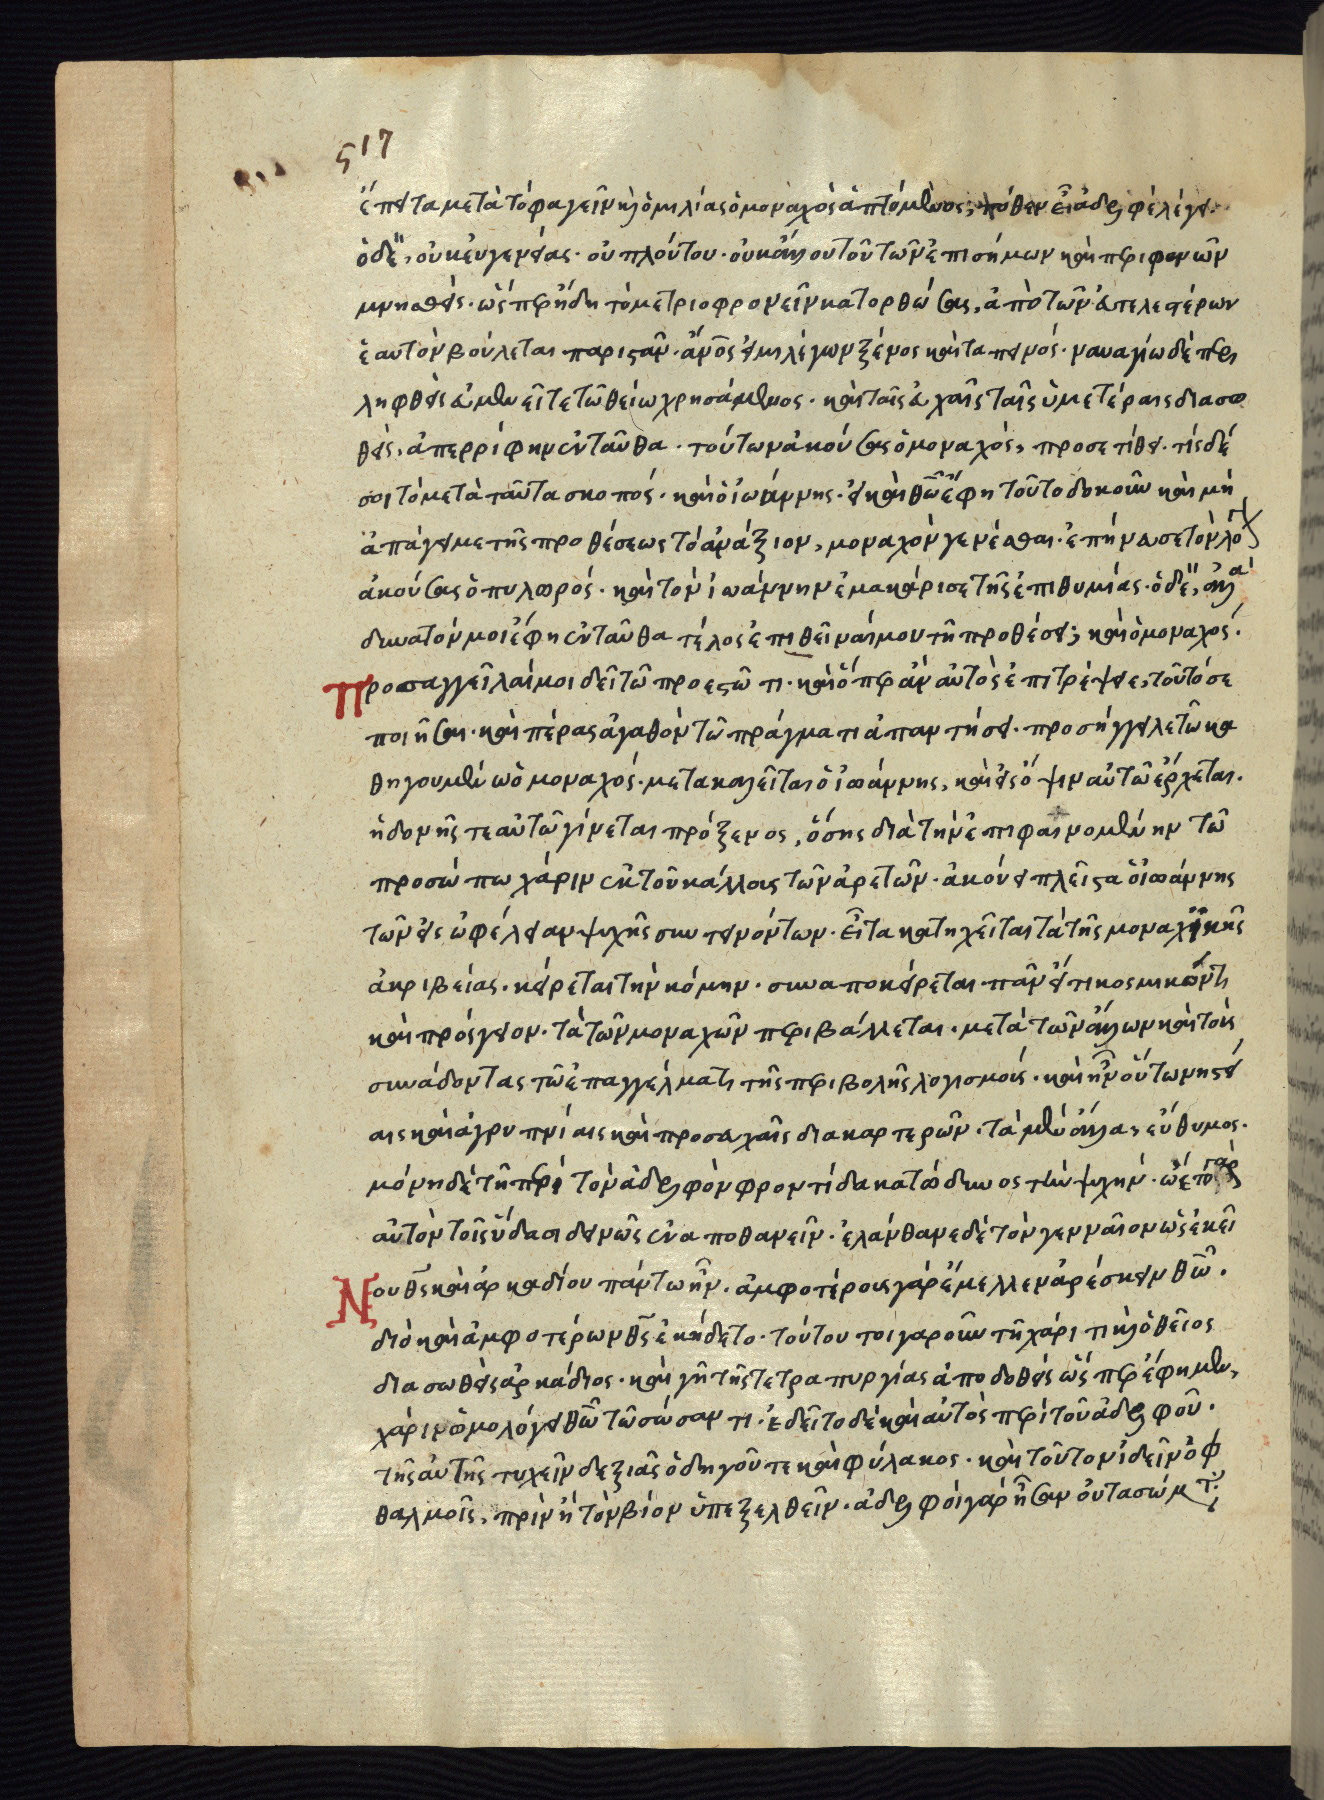 517
ἔπειτα μετὰ τὸ φαγεῖν καὶ ὁμιλίας ὁ μοναχὸς ἁπτόμενος, πόθεν εἶ ἀδελφὲ λέγει.
ὁ δὲ, οὐκ εὐγενείας. οὐ πλούτου. οὐκ ἄλλου του τῶν ἐπισήμων καὶ περιφανῶν
μνησθείς. ὥσπερ ἤδη τὸ μετριοφρονεῖν κατορθώσας, ἀπὸ τῶν εὐτελεστέρων
ἑαυτὸν βούλεται παριστᾶν. ἄνος εἰμι λέγων ξένος καὶ ταπεινός. ναυαγίω δὲ περι
ληφθεὶς εὐμενεῖ τε τῶ θείω χρησάμενος. καὶ ταῖς εὐχαῖς ταῖς ὑμετέραις διασω
θείς, ἀπερρίφην ἐνταῦθα. τούτων ἀκούσας ὁ μοναχός, προσετίθει. τίς δέ
σοι τὸ μετὰ ταῦτα σκοπός. καὶ ὁ ἰωάννης. εἰ καὶ θῶ ἔφη τοῦτο δοκοῦν καὶ μὴ
ἀπάγει με τῆς προθέσεως τὸ ἀνάξιον, μοναχὸν γενέσθαι. ἐπήνεσε τὸν λόγον
ἀκούσας ὁ πυλωρός. καὶ τὸν ἰωάννην ἐμακάρισε τῆς ἐπιθυμίας. ὁ δὲ, ἀλλὰ
δυνατόν μοι ἔφη ἐνταῦθα τέλος ἐπιθεῖναί μου τῆ προθέσει; καὶ ὁ μοναχός.
Προσαγγεῖλαί μοι δεῖ τῶ προεστῶτι. καὶ ὅπερ ἂν αὐτὸς ἐπιτρέψειε, τοῦτό σε
ποιῆσαι. καὶ πέρας ἀγαθὸν τῶ πράγματι ἀπαντήσει. προσήγγειλε τῶ κα
θηγουμένω ὁ μοναχός. μετακαλεῖται ὁ ἰωάννης, καὶ εἰς ὄψιν αὐτῶ ἔρχεται.
ἡδονῆς τε αὐτῶ γίνεται πρόξενος, ὅσης διὰ τὴν ἐπιφαινομένην τῶ
προσώπω χάριν ἐκ τοῦ κάλλους τῶν ἀρετῶν. ἀκούει πλεῖστα ὁ ἰωάννης
τῶν εἰς ὠφέλειαν ψυχῆς συντεινόντων. εἶτα κατηχεῖται τὰ τῆς μοναχικῆς
ἀκριβείας. κείρεται τὴν κόμην. συναποκείρεται πᾶν εἴ τι κοσμικὸν τι
καὶ πρόσγειον. τὰ τῶν μοναχῶν περιβάλλεται. μετὰ τῶν ἄλλων καὶ τοὺς
συνάδοντας τῶ ἐπαγγέλματι τῆς περιβολῆς λογισμούς. καὶ ἦν οὕτω νηστεί
αις καὶ ἀγρυπνίαις καὶ προσευχαῖς διακαρτερῶν. τὰ μὲν ἄλλα, εὔθυμος.
μόνη δὲ τῆ περὶ τὸν ἀδελφὸν φροντίδι κατώδυνος τὴν ψυχήν. ὤετο γὰρ
αὐτὸν τοῖς ὕδασι δεινῶς ἐναποθανεῖν. ἐλάνθανε δὲ τὸν γενναῖον ὡς ἐκεῖ
Νου θς καὶ ἀρκαδίου πάντως ἦν. ἀμφοτέρους γὰρ ἔμελλεν ἀρέσκειν θῶ.
διὸ καὶ ἀμφοτέρων θς ἐκήδετο. τούτου τοιγαροῦν τῆ χάριτι καὶ ὁ θεῖος
διασωθεὶς ἀρκάδιος. καὶ γῆ τῆς τετραπυργίας ἀποδοθεὶς ὥσπερ ἔφημεν,
χάριν ὡμολόγει θῶ τῶ σώσαντι. ἐδεῖτο δὲ καὶ αὐτὸς περὶ τοῦ ἀδελφοῦ.
τῆς αὐτῆς τυχεῖν δεξιᾶς ὁδηγοῦ τε καὶ φύλακος. καὶ τοῦτον ἰδεῖν ὀφ
θαλμοῖς, πρὶν ἢ τὸν βίον ὑπεξελθεῖν. ἀδελφοὶ γὰρ ἦσαν οὐ τὰ σώματα